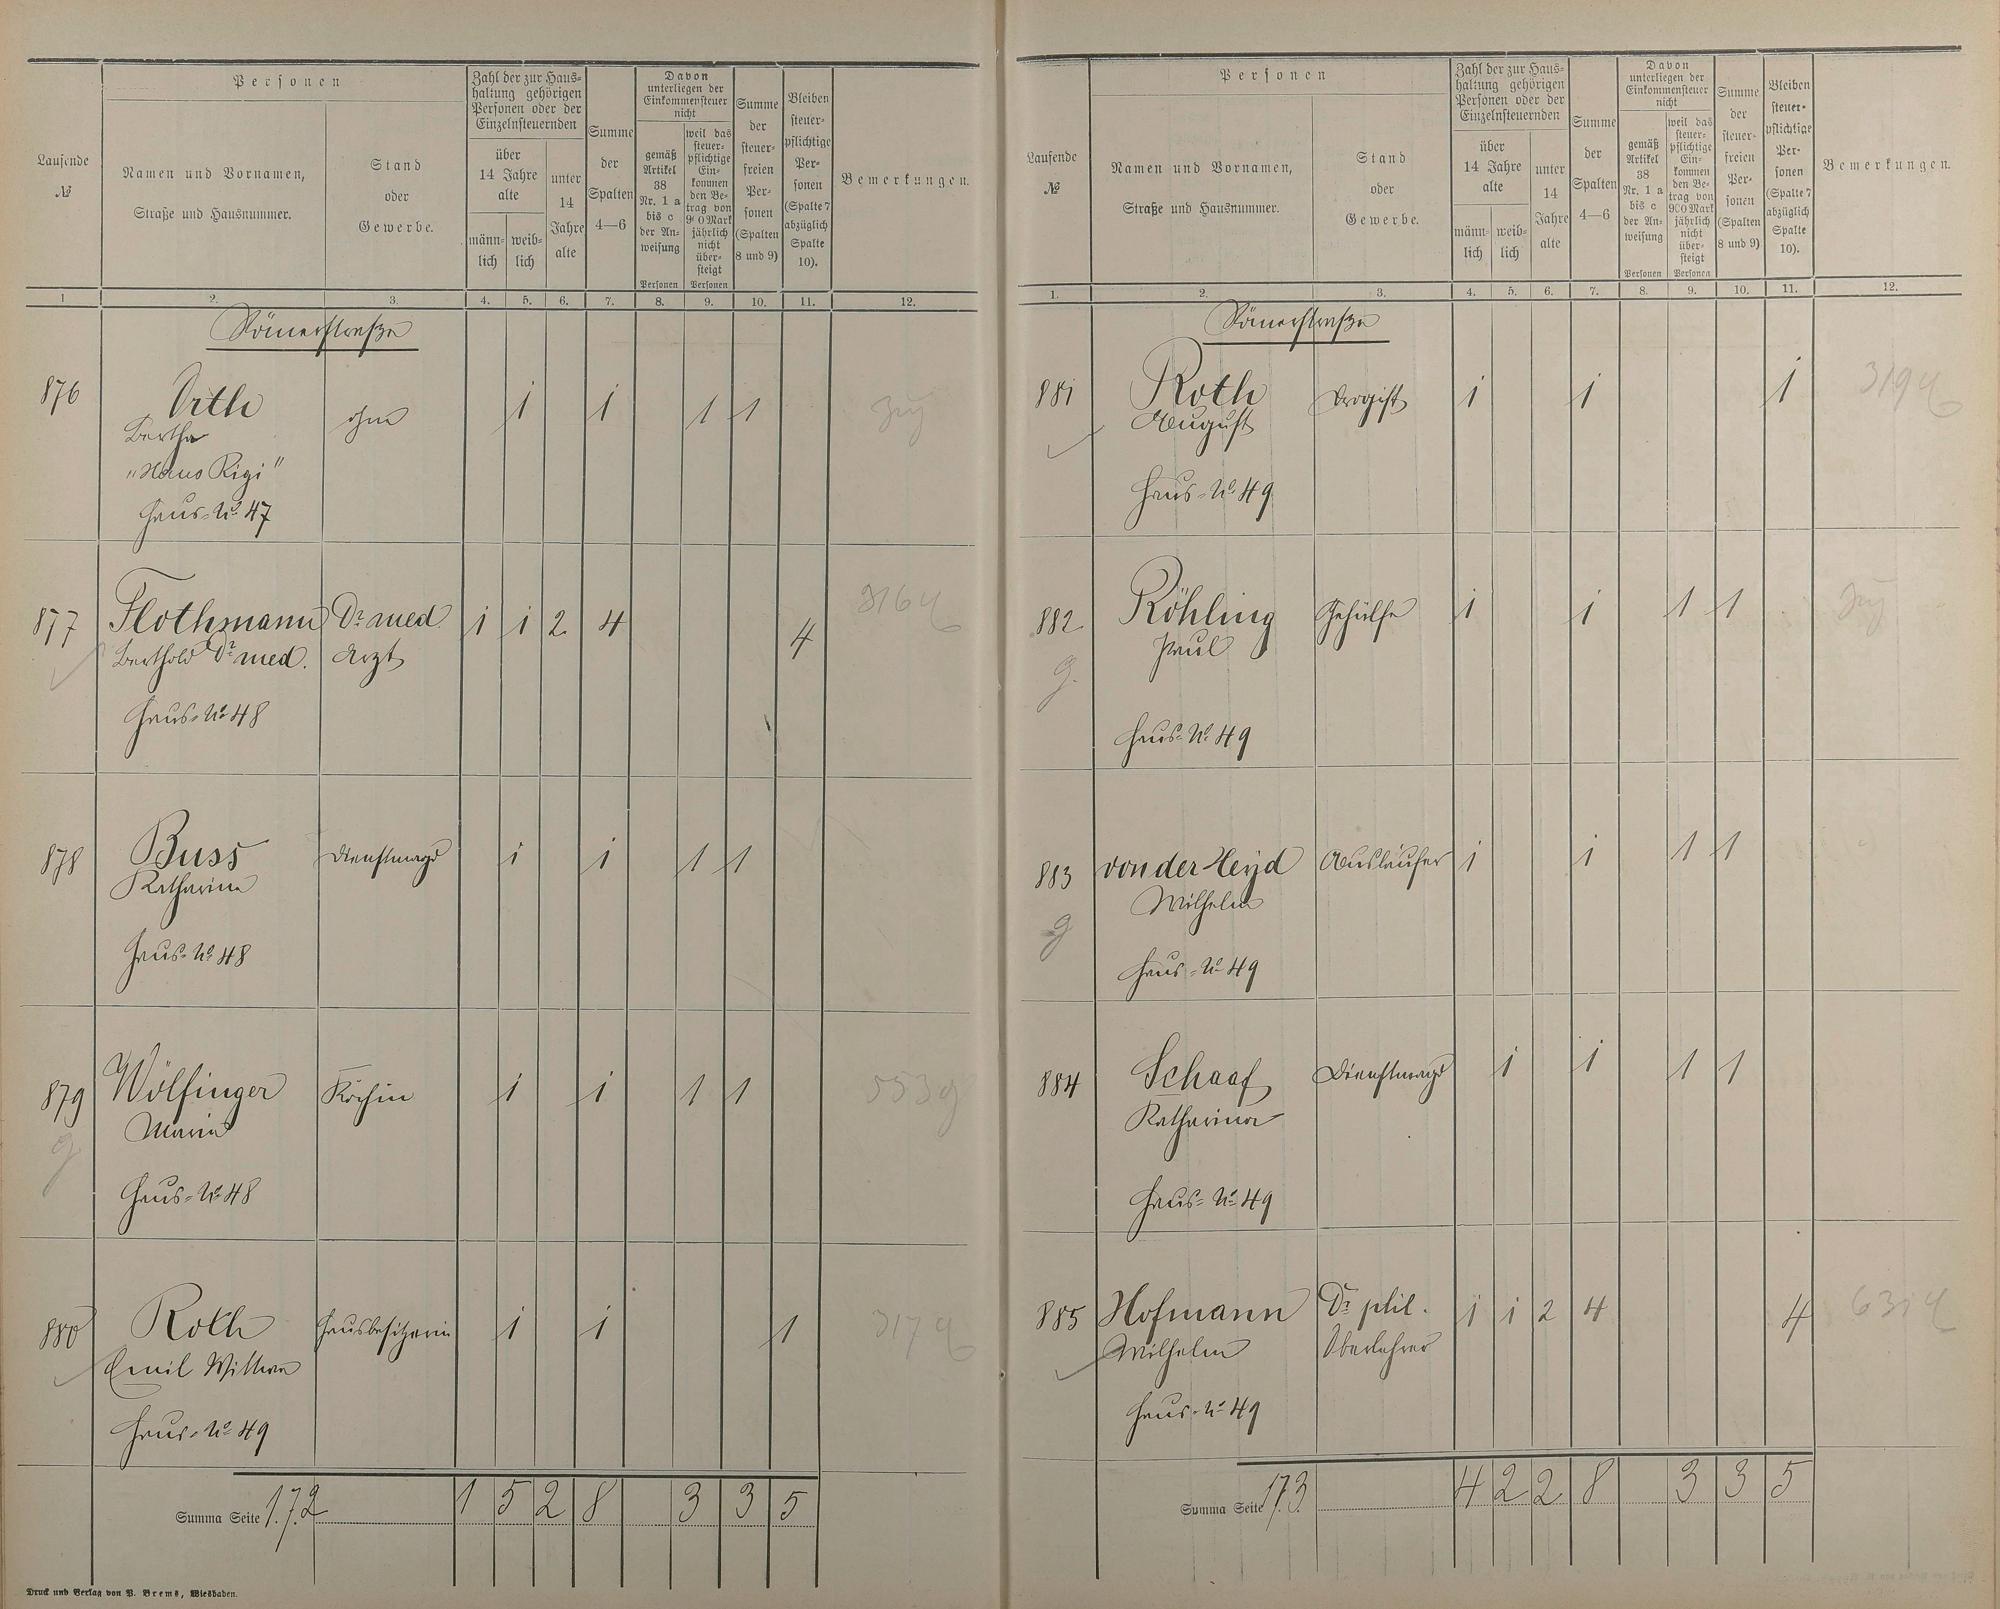 Personen
Laufende
№
Namen und Vornamen,
Straße und Hausnummer.
Stand
oder
Gewerbe.
Zahl der zur Haus=
haltung gehörigen
Personen oder der
Einzelnsteuernden
über
14 Jahre
alte
männ=
lich
weib=
lich
unter
14
Jahre
alte
Summe
der
Spalten
4—6
Davon
unterliegen der
Einkommensteuer
nicht
gemäß
Artikel
38
Nr. 1 a
bis c
der An=
weisung
Personen
weil das
steuer=
pflichtige
Ein=
kommen
den Be=
trag von
900 Mark
jährlich
nicht
über=
steigt
Personen
Summe
der
steuer=
freien
Per=
sonen
(Spalten
8 und 9)
Bleiben
steuer=
pflichtige
Per=
sonen
(Spalte 7
abzüglich
Spalte
10).
Bemerkungen.
1 2. 3. 4. 5. 6. 7. 8. 9. 10. 11. 12.
Römerstraße
876 Orth ohne 1 1 1 1
Bertha
"Haus Rigi"
Haus=No 47
877 Flothmann Dr med. 1 1 2 4 4 316 4
Berthold Dr med. Arzt
Haus=No 48
878 Buss Dienstmagd 1 1 1 1
Katharina
Haus=No 48
879 Wölfinger Köchin 1 1 1 1 553 g
g Maria
Haus=No 48
880 Roth Hausbesitzerin 1 1 1 317 4
Emil Wittwe
Haus=No 49
Summa Seite 172 1 5 2 8 3 3 5
Druck und Verlag von P. Brems, Wiesbaden.
Personen
Laufende
№
Namen und Vornamen,
Straße und Hausnummer.
Stand
oder
Gewerbe.
Zahl der zur Haus=
haltung gehörigen
Personen oder der
Einzelnsteuernden
über
14 Jahre
alte
männ=
lich
weib=
lich
unter
14
Jahre
alte
Summe
der
Spalten
4—6
Davon
unterliegen der
Einkommensteuer
nicht
gemäß
Artikel
38
Nr. 1 a
bis c
der An=
weisung
Personen
weil das
steuer=
pflichtige
Ein=
kommen
den Be=
trag von
900 Mark
jährlich
nicht
über=
steigt
Personen
Summe
der
steuer=
freien
Per=
sonen
(Spalten
8 und 9)
Bleiben
steuer=
pflichtige
Per=
sonen
(Spalte 7
abzüglich
Spalte
10).
Bemerkungen.
1. 2. 3. 4. 5. 6. 7. 8. 9. 10. 11. 12.
Römerstraße
881 Roth Drogist 1 1 1 319 4
August
Haus=No 49
882 Röhling Gehülfe 1 1 1 1
g. Paul
Haus=No 49
883 von der Heyd Ausläufer 1 1 1 1
g Wilhelm
Haus=No 49
884 Schaaf Dienstmagd 1 1 1 1
Katharina
Haus=No 49
885 Hofmann Dr phil. 1 1 2 4 4
Wilhelm Oberlehrer
Haus=No 49
Summa Seite 173 4 2 2 8 3 3 5